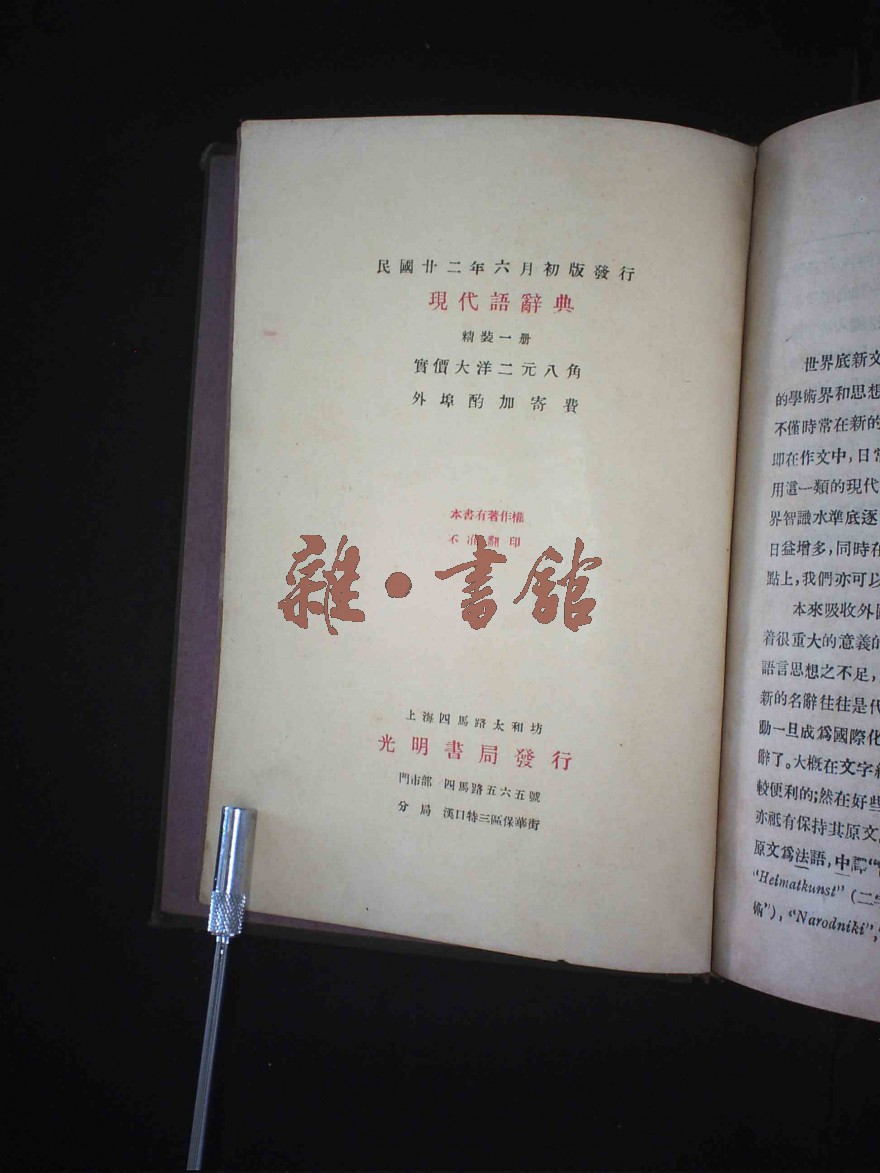 民國廿二年六月初版發行
現代語辭典
精裝一册
實價大洋二元八角
外埠酌加寄費
本書有著作權
不准翻印
雜·書館
上海四馬路太和坊
光明書局發行
門市部 四馬路五六五號
分局 漢口特三區保華街
世界底新文
的學術界和思想
不僅時常在新的
卽在作文中,日常
用這一類的現代
界智識水準底逐
日益增多,同時在
點上,我們亦可以
本來吸收外國
着很重大的意義的
語言思想之不足,
新的名辭往往是代
動一旦成爲國際化
辭了。大概在文字組
較便利的;然在好些
亦祇有保持其原文
原文爲法語,中譯“
“Heimatkunst” (二字
術”), “Narodniki”,